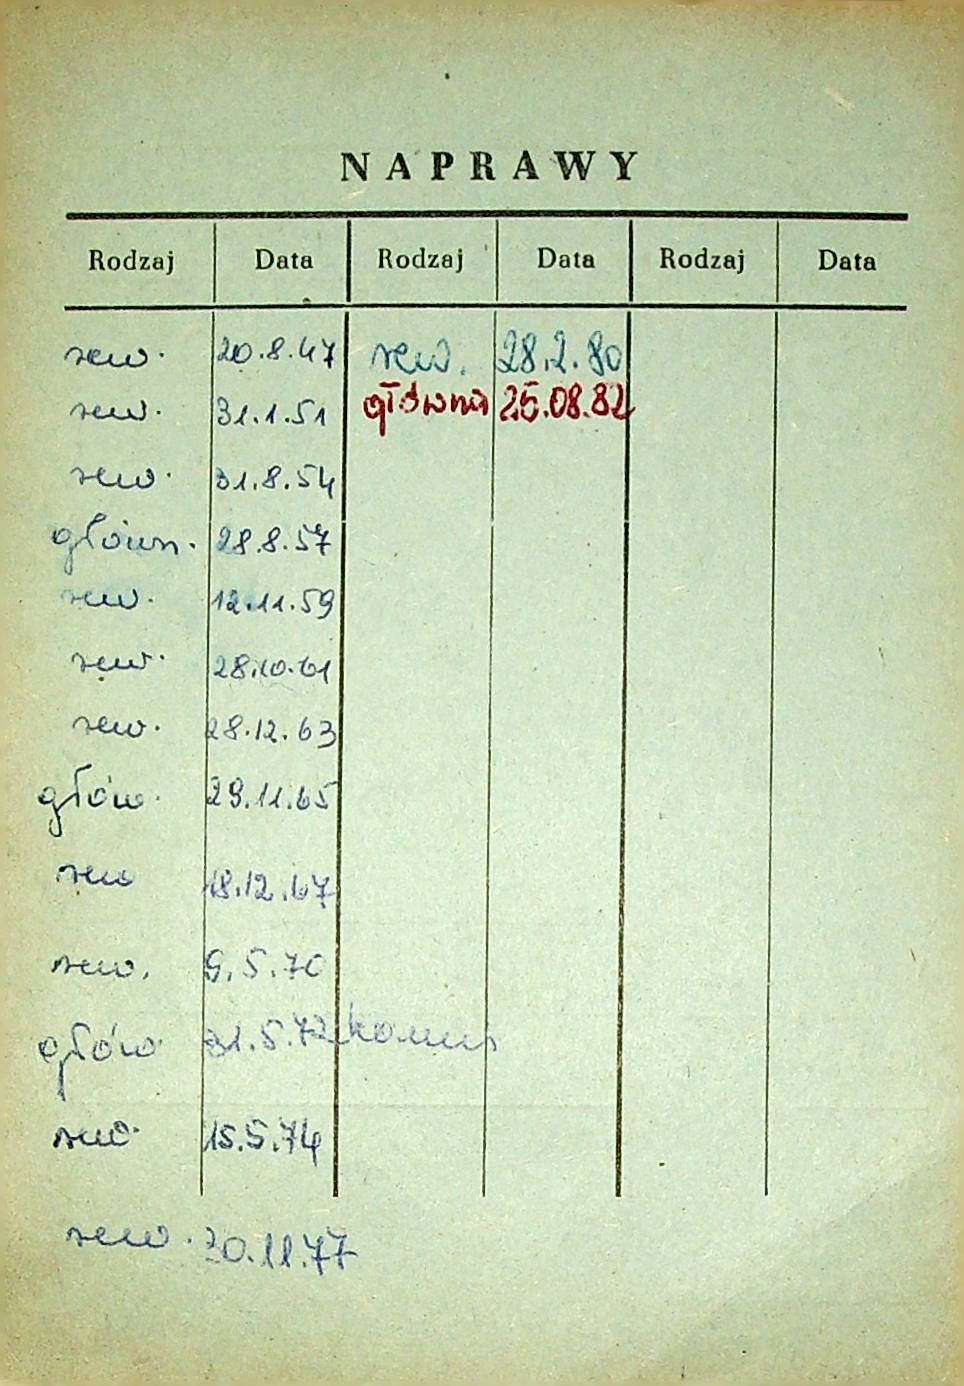 NAPRAWY
Rodzaj Data Rodzaj Data Rodzaj Data
rew. 20.8.47 rew. 28.2.80
rew. 31.1.51 główna 25.08.82
rew. 31.8.54
główn. 28.8.57
rew. 12.11.59
rew. 28.10.61
rew. 28.12.63
głów. 29.11.65
rew 18.12.67
rew. 9.5.70
głów. 31.5.72
rew. 15.5.74
rew. 30.11.77